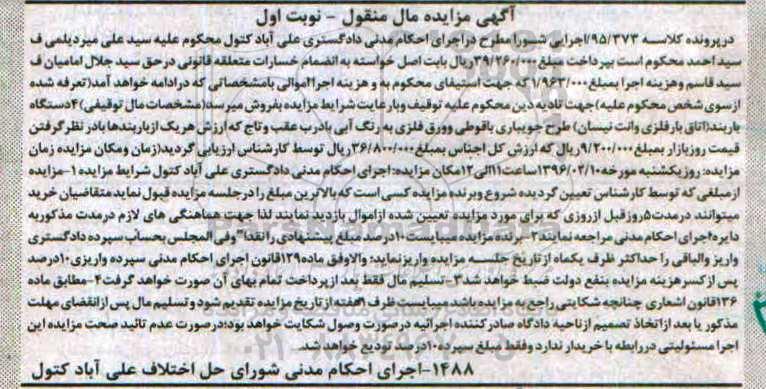 آگهی مزایده مال منقول - نوبت اول
در پرونده کلاسه ۹۵/۳۷۳اجرایی شورا مطرح در اجرای احکام مدنی دادگستری علی آباد کتول محکوم علیه سید علی میردیلمی ف
سید احمد محکوم است بپرداخت مبلغ ۳۹/۲۶۰/۰۰۰ریال بابت اصل خواسته به انضمام خسارات متعلقه قانونی در حق سید جلال امامیان ف
سید قاسم وهزینه اجرا بمبلغ۳۱/۹۶۳/۰۰۰جهت استیفای محکوم به و هزینه اجرا اموالی بامشخصاتی که در ادامه خواهد آمد(تعرفه شده
ازسوی شخص محکوم علیه)جهت تادیه دین محکوم علیه توقیف وبارعایت شرایط مزایده بفروش میرسد(مشخصات مال توقیفی)۴دستگاه
باربند(اتاق بار فلزی وانت نیسان) طرح جویباری باقوطی وورق فلزی به رنگ آبی بادرب عقب وتاج که ارزش هریک ازباربندها بادر نظر گرفتن
قیمت روزبازار بمبلغ۹/۲۰۰/۰۰۰ریال که ارزش کل اجناس بمبلغ۳۶/۸۰۰/۰۰۰ریال توسط کارشناس ارزیابی گردید(زمان ومکان مزایده زمان
مزایده: روز یکشنبه مورخه ۱۳۹۶/۰۲/۱۰ساعت۱۱الی۱۲مکان مزایده: اجرای احکام مدنی دادگستری علی آباد کتول شرایط مزایده ۱-مزایده
ازمبلغی که توسط کارشناس تعیین گردیده شروع وبرنده مزایده کسی است که بالاترین مبلغ را درجلسه مزایده قبول نماید متقاضیان خرید
میتوانند درمدت۵روزقبل ازروزی که برای مورد مزایده تعیین شده ازاموال بازدید نمایند لذا جهت هماهنگی های لازم درمدت مذکور به
دایره اجرای احکام مدنی مراجعه نمایند ۲- برنده مزایده میبایست۱۰درصد مبلغ پیشنهادی را نقدا" وفی المجلس بحساب سپرده دادگستری
واریز والباقی را حداکثر ظرف یکماه ازتاریخ جلسه مزایده واریزنماید؛ والاوفق ماده۱۲۹قانون اجرای احکام مدنی سپرده واریزی۱۰درصد
پس ازکسر هزینه مزایده بنفع دولت ضبط خواهد شد۳-تسلیم مال فقط بعد ازپرداخت تمام بهای آن صورت خواهد گرفت۴-مطابق ماده
۱۳۶قانون اشعاری چنانچه شکایتی راجع به مزایده باشد میبایست ظرف ۱هفته ازتاریخ مزایده تقدیم شود و تسلیم مال پس ازانقضای مهلت
مذکور یا بعد ازاتخاذ تصمیم ازناحیه دادگاه صادرکننده اجرائیه در صورت وصول شکایت خواهد بود؛درصورت عدم تائید صحت مزایده این
اجرا مسئولیتی دررابطه با خریدار ندارد وفقط مبلغ سپرده ۱۰درصد تودیع خواهد شد.
۱۴۸۸-اجرای احکام مدنی شورای حل اختلاف علی آباد کتول
ParsNamadData